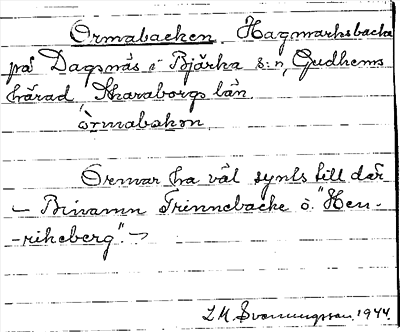 Ormabacken. Hagmarksbacke
på Dagsnäs i Bjärka s:n, Gudhems
härad, Skaraborgs län.
òrmabakən
Ormar ha väl synts till där
— Binamn Trinnebacke o. "Hen-
-rikeberg". —
L. M. Svanungsson. 1944.